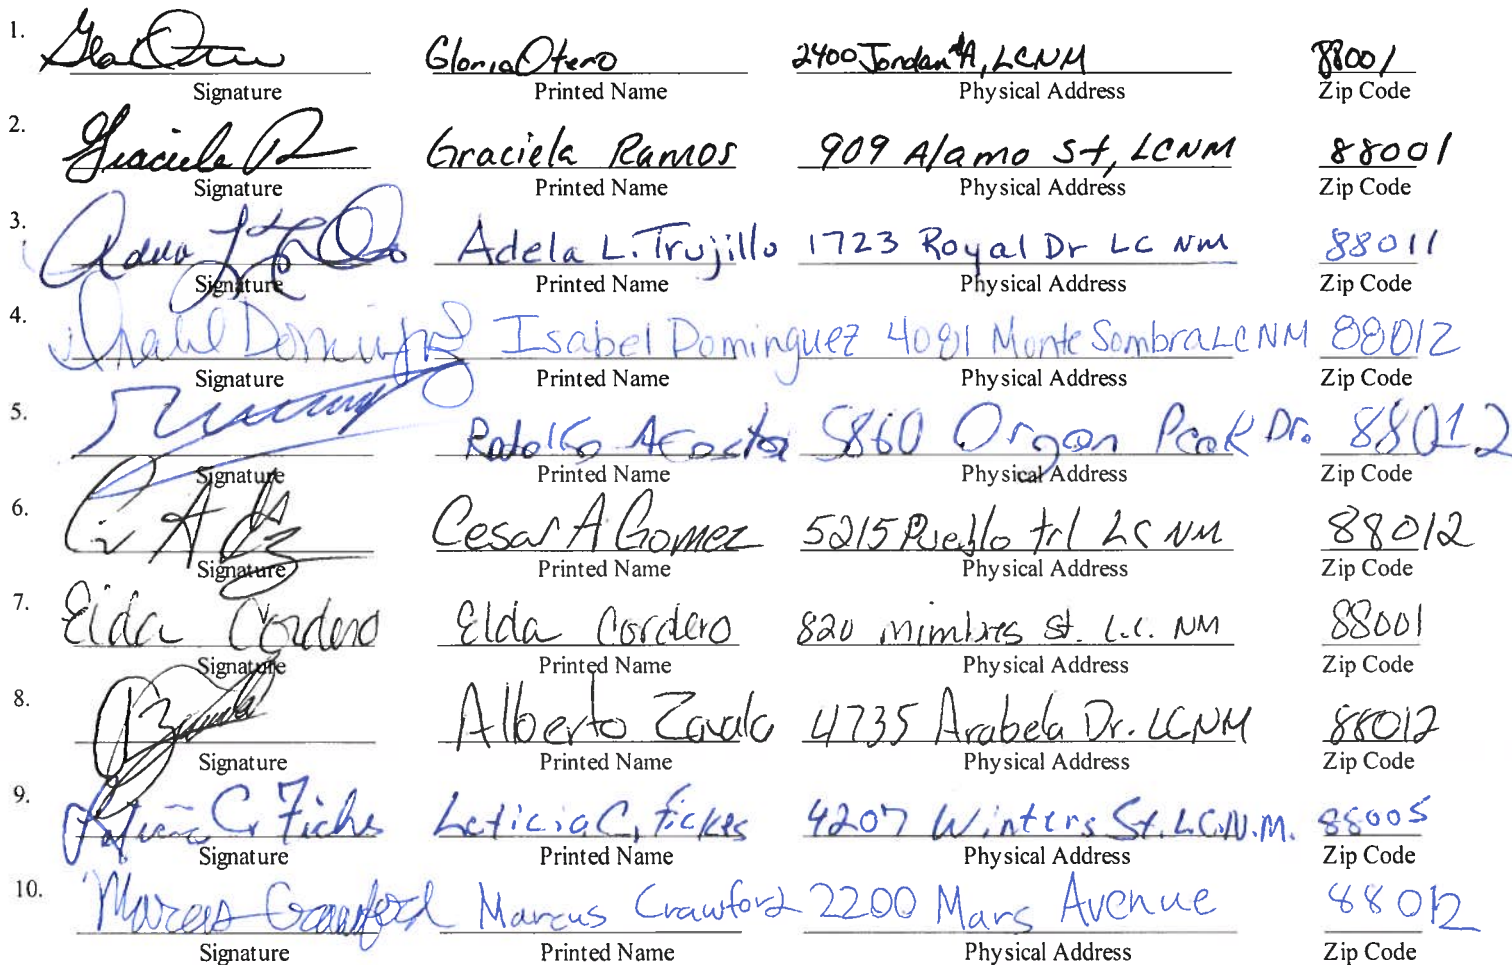 1. Gloria Otero 2400 Jordan #A, LCNM 88001
Signature Printed Name Physical Address Zip Code
2. Graciela R Graciela Ramos 909 Alamo St, LCNM 88001
Signature Printed Name Physical Address Zip Code
3. Adela L. Trujillo 1723 Royal Dr LC NM 88011
Signature Printed Name Physical Address Zip Code
4. Isabel Dominguez Isabel Dominguez 4081 Monte Sombra LC NM 88012
Signature Printed Name Physical Address Zip Code
5. Rodolfo Acosta 5860 Organ Peak Dr. 88012
Signature Printed Name Physical Address Zip Code
6. Cesar A Gomez 5215 Pueblo trl LC NM 88012
Signature Printed Name Physical Address Zip Code
7. Elda Cordero Elda Cordero 820 mimbres st. L.C. NM 88001
Signature Printed Name Physical Address Zip Code
8. Alberto Zavala 4735 Arabela Dr. LCNM 88012
Signature Printed Name Physical Address Zip Code
9. Leticia C. Fickes Leticia C, Fickes 4207 Winters St. L.C.N.M. 88005
Signature Printed Name Physical Address Zip Code
10. Marcus Crawford Marcus Crawford 2200 Mars Avenue 88012
Signature Printed Name Physical Address Zip Code